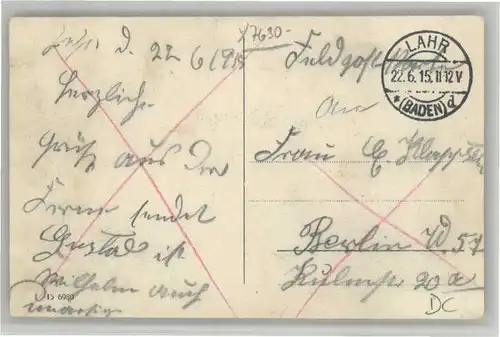 Lahr d. 22 6 1915
Herzliche
Grüße aus der
Ferne sendet
Gustav ist
Wilhelm auch
15 6980
x7630-
Feldpostkarte
LAHR
22.6.15.11-12V
*(BADEN)d
An
Frau E
Berlin W 57
Kulmstr 20a
DC